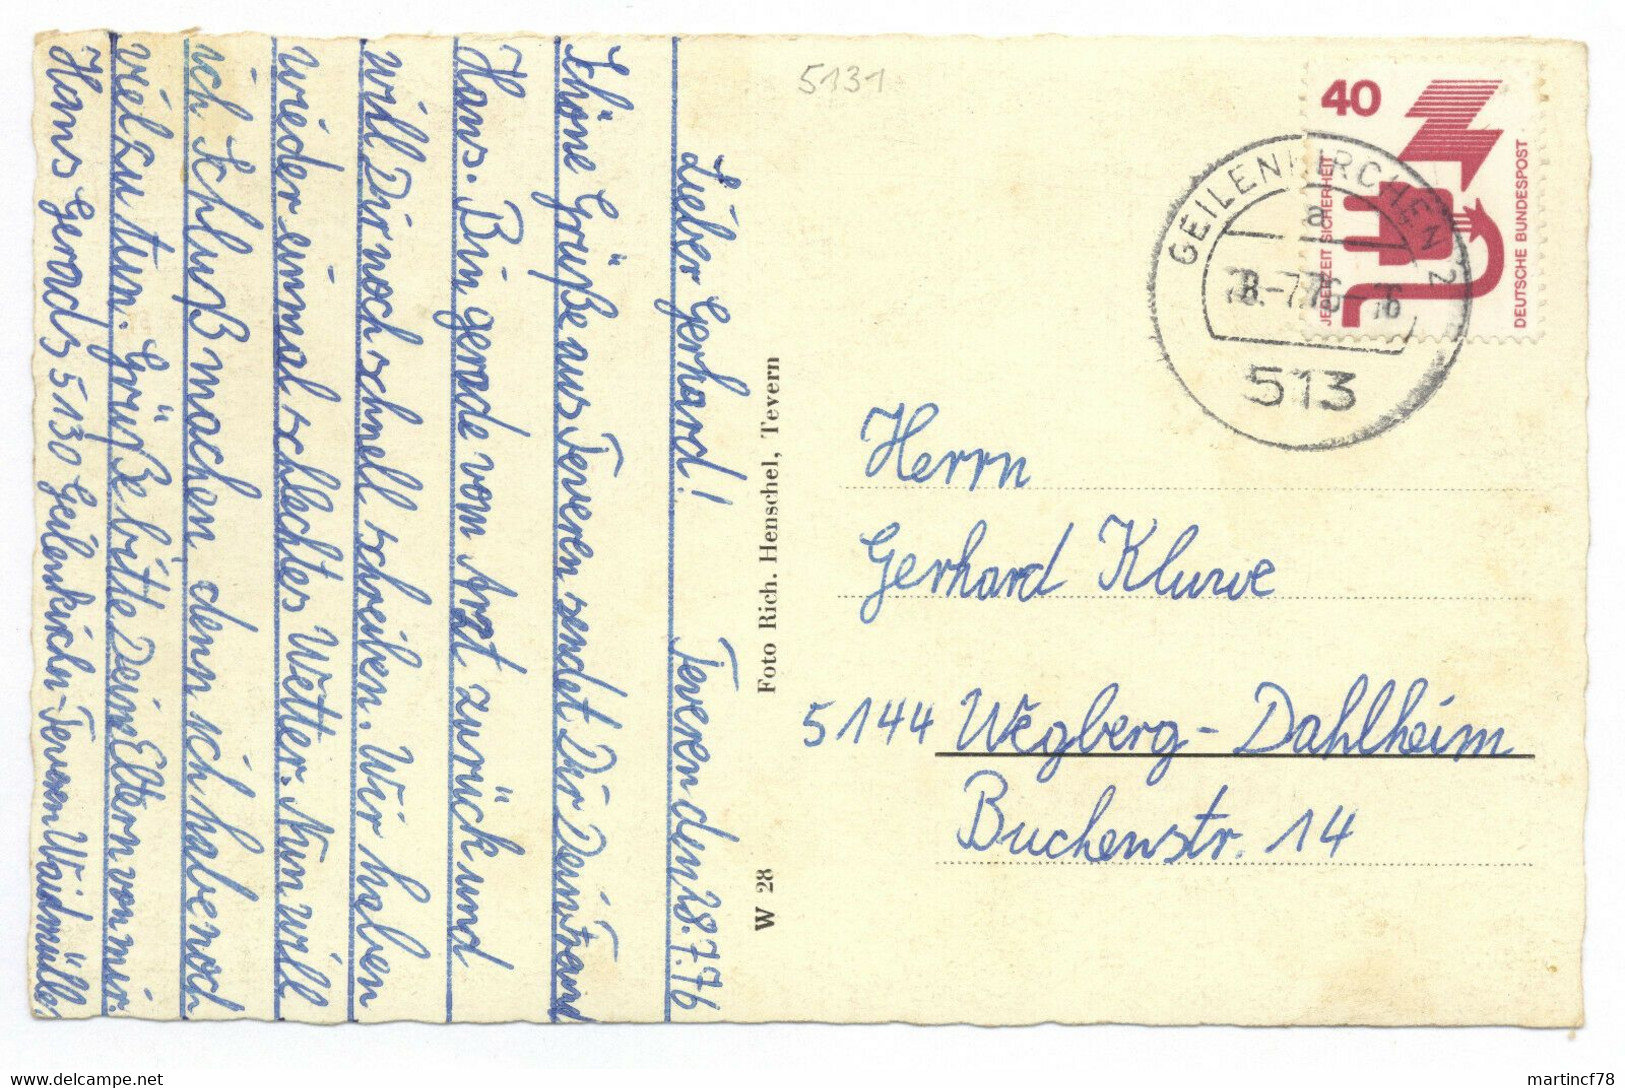 Lieber Gerhard! Teveren den 28.7.76
Schöne Grüße aus Teveren sendet Dir Dein Freund
Hans. Bin gerade vom Arzt zurück und
will Dir noch schnell schreiben. Wir haben
wieder einmal schlechtes Wetter. Nun will
ich Schluß machen denn ich habe noch
viel zu tun. Grüße bitte Deine Eltern von mir.
Hans Gerads 5130 Geilenkirchn-Teveren Waidmühle
W 28 Foto Rich. Henschel, Tevern
5131
40
JEDERZEIT SICHERHEIT
DEUTSCHE BUNDESPOST
GEILENKIRCHEN 2
a
513
Herrn
Gerhard Kluwe
5144 Wegberg-Dahlheim
Buchenstr. 14
www.delcampe.net
martincf78